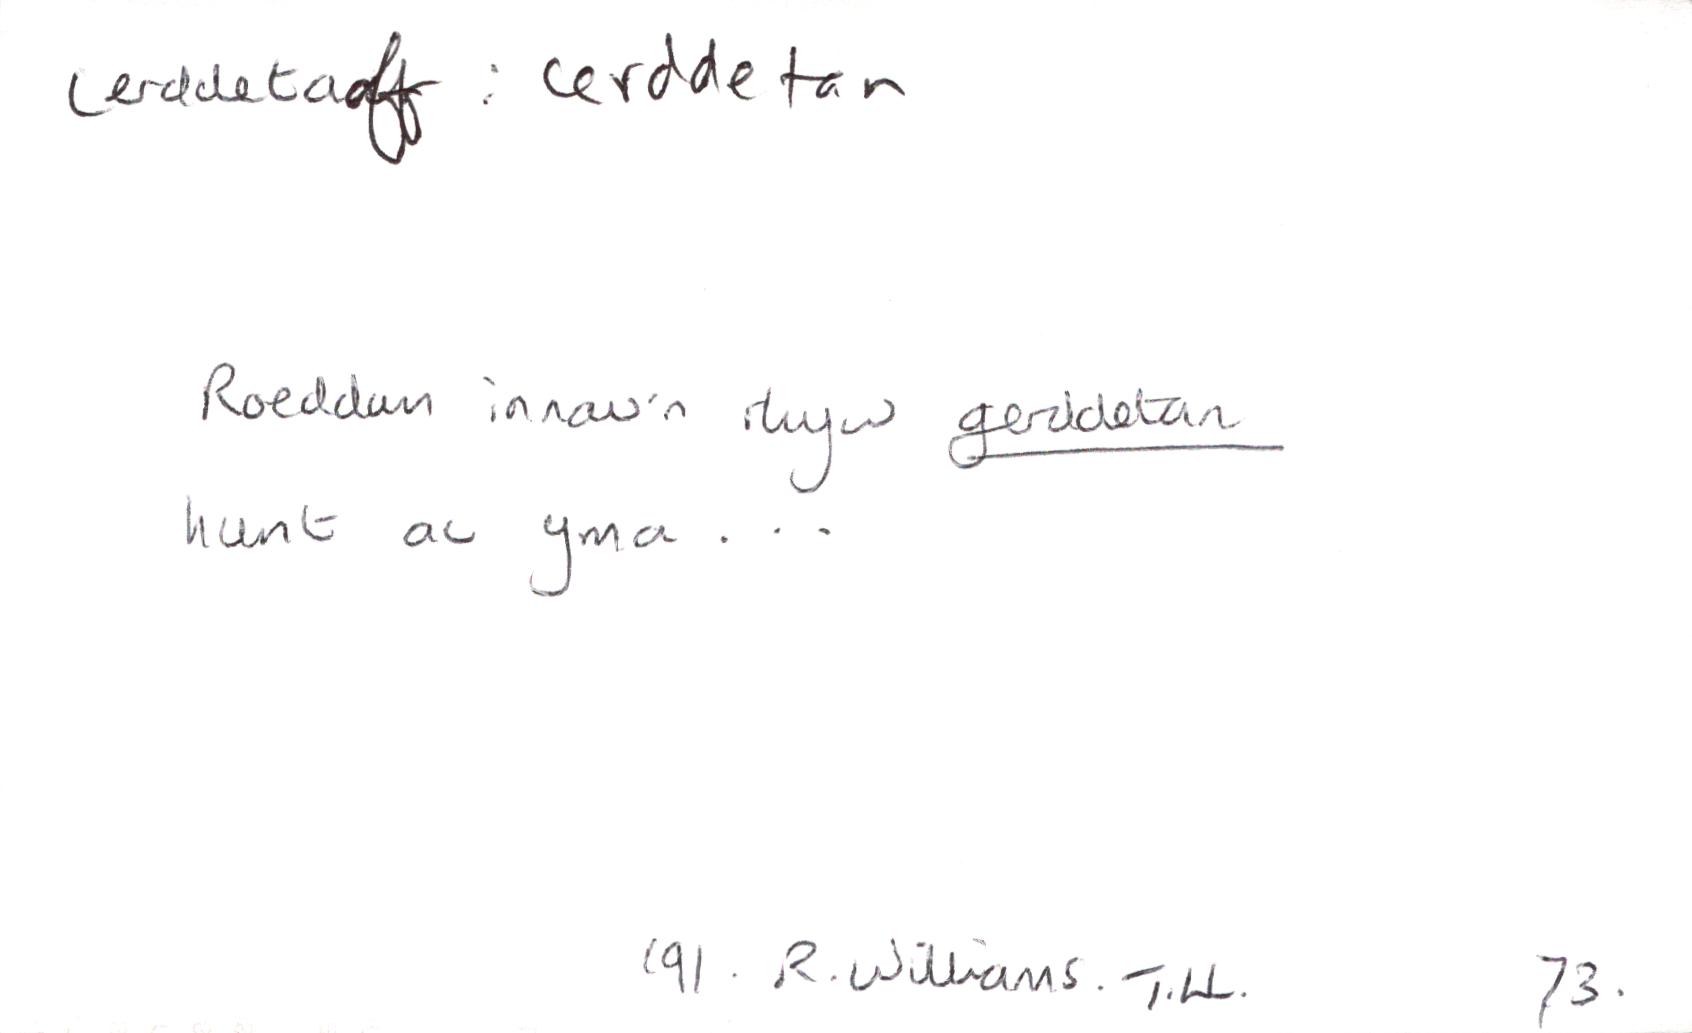 cerddetaff : cerddetan
Roeddun innau'n rhyw gerddetan
hunt ac yma . . .
191. R. Williams. T.H. 73.